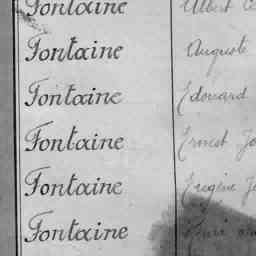 Fontaine Albert
Fontaine Auguste
Fontaine Edouard
Fontaine Ernest
Fontaine Eugène
Fontaine